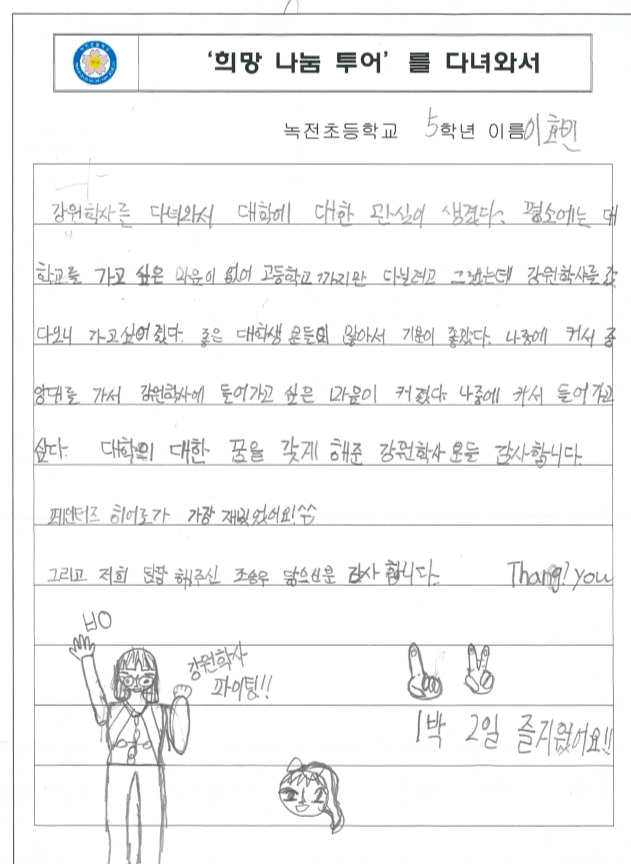 '희망 나눔 투어' 를 다녀와서
녹전초등학교 5학년 이름 이효빈
강원학사를 다녀와서 대학에 대한 관심이 생겼다. 평소에는 대
학교를 가고 싶은 마음이 없어 고등학교 까지만 다닐려고 그랬는데 강원학사를 갔
다오니 가고싶어 졌다. 좋은 대학생 분들이 많아서 기분이 좋았다. 나중에 커서 중
앙대를 가서 강원학사에 들어가고 싶은 마음이 커졌다. 나중에 커서 들어가고
싶다. 대학의 대한 꿈을 갖게 해준 강원학사 분들 감사합니다.
페인터즈 히어로가 가장 재밌었어요!^^
그리고 저희 담당 해주신 조승우 닮으신분 감사 합니다. Thang! you
강원학사
파이팅!!
1박 2일 즐거웠어요!!